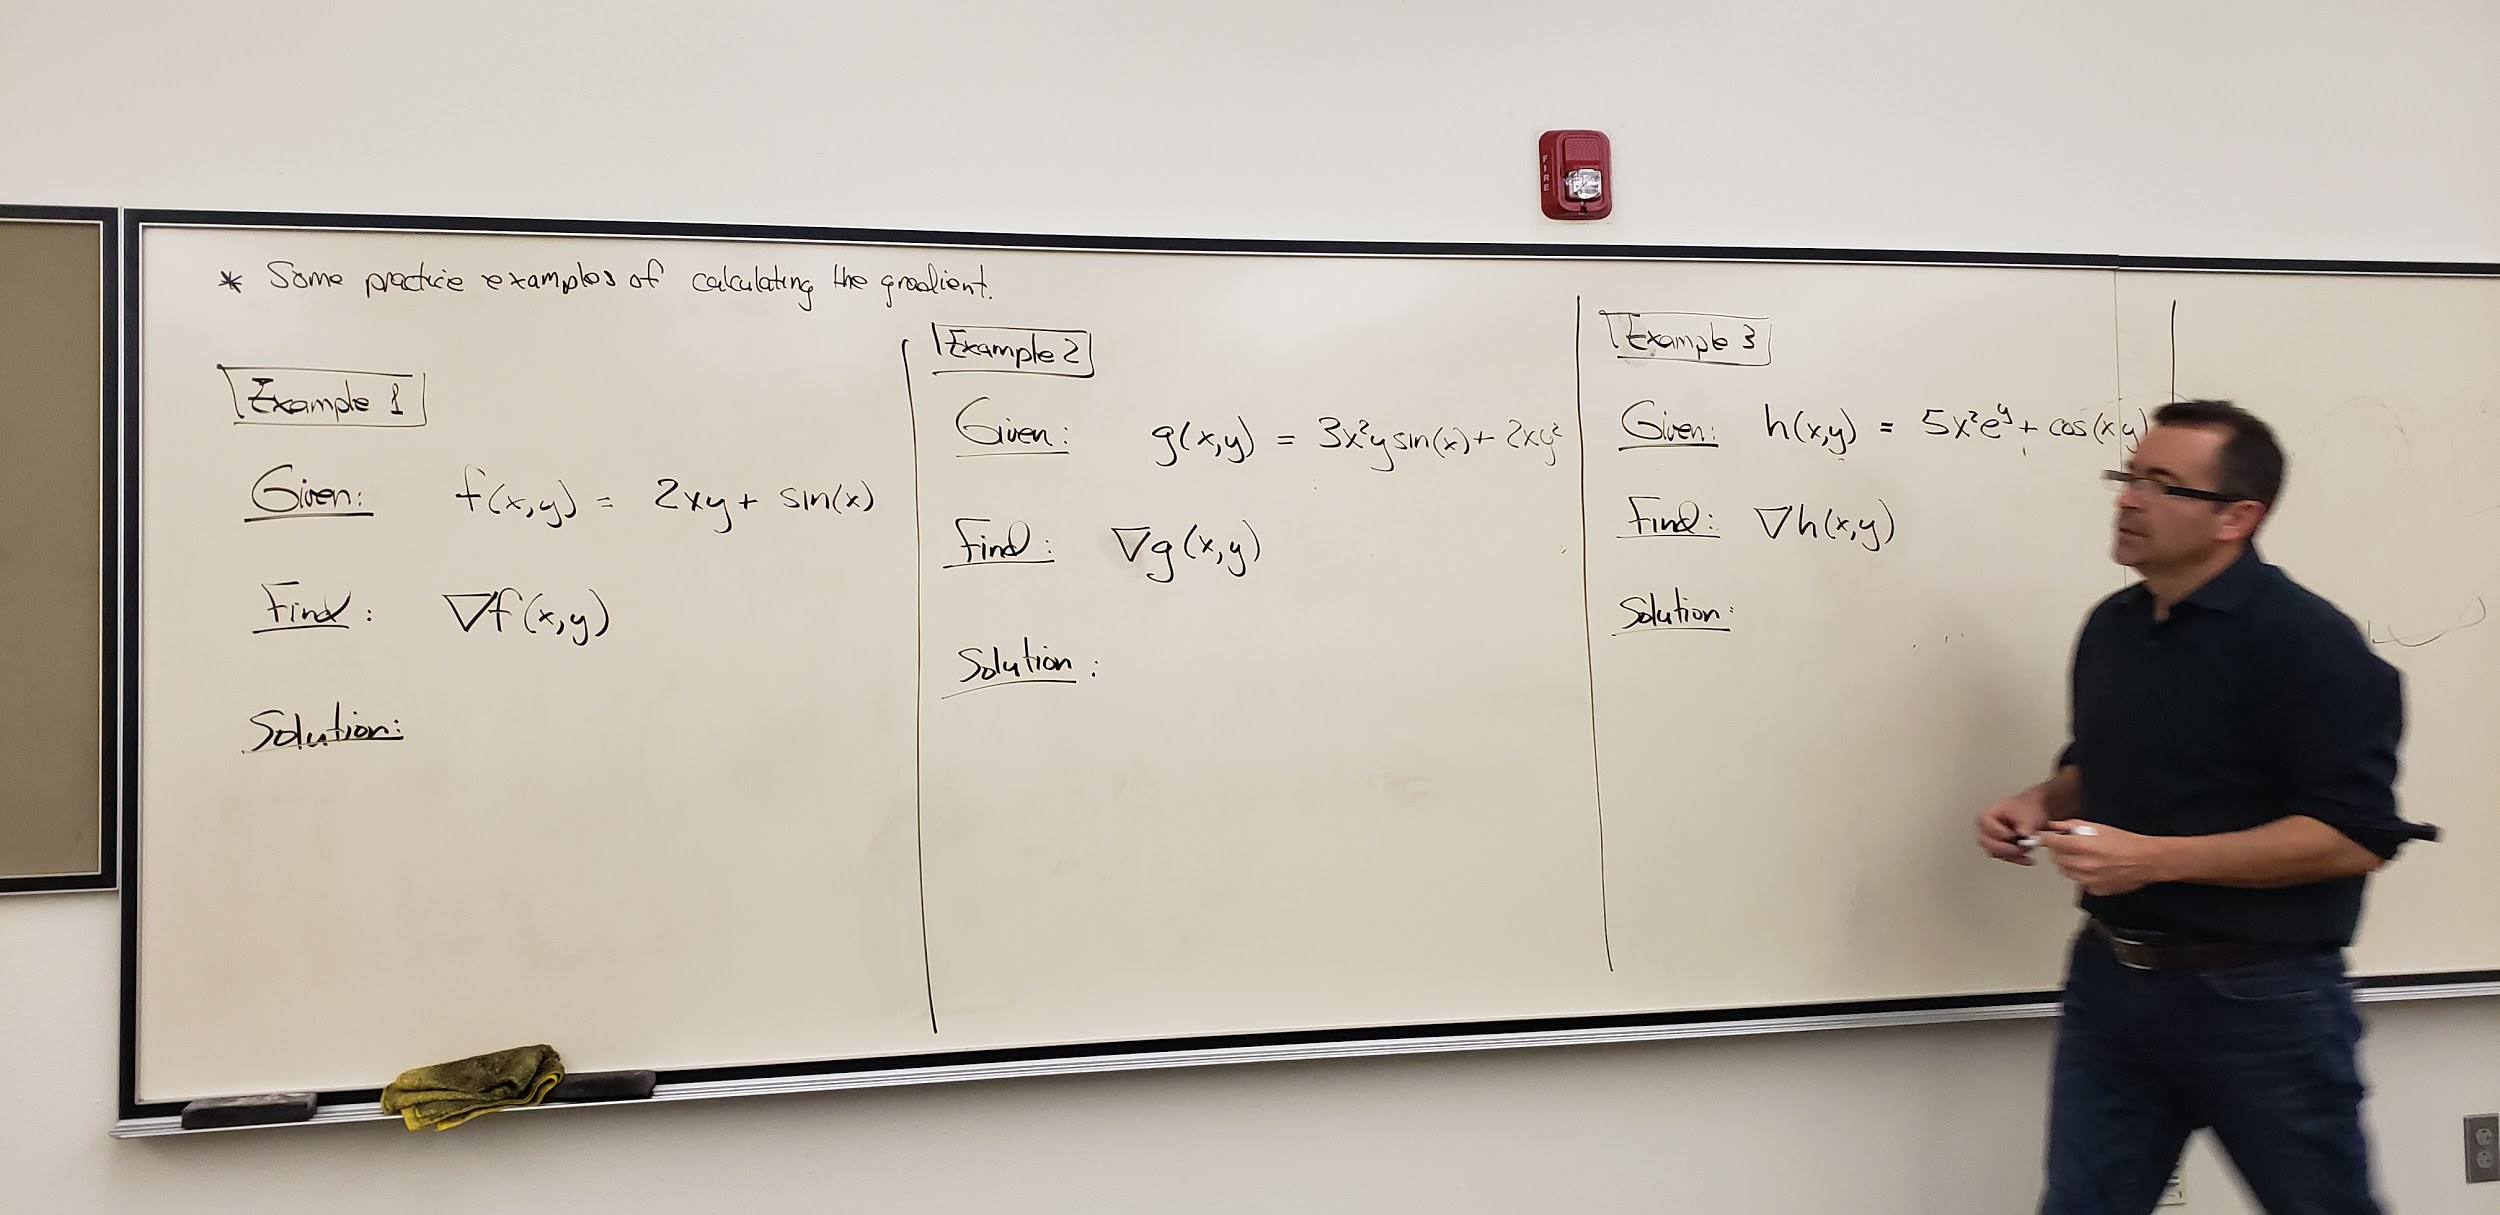 * Some practice examples of calculating the gradient.
Example 1
Given: f(x,y) = 2xy + sin(x)
Find: ∇f(x,y)
Solution:
Example 2
Given: g(x,y) = 3x²y sin(x) + 2xy²
Find: ∇g(x,y)
Solution:
Example 3
Given: h(x,y) = 5x²e^y + cos(xy)
Find: ∇h(x,y)
Solution:
FIRE